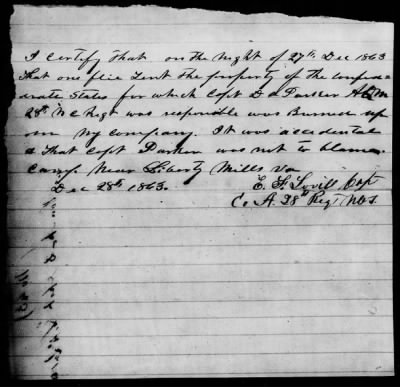 I certify that on the night of 27th Dec 1863
that one flie Tent the property of the confede
rate States for which Capt D A Parker AQM
28th N C Regt was responsible was Burned up
in my company. It was accidental
& that Capt Parker was not to blame.
Camp Near Liberty Mills Va
Dec 28th 1863.
E. F. Lovill Capt
C. A. 28th Regt N C S